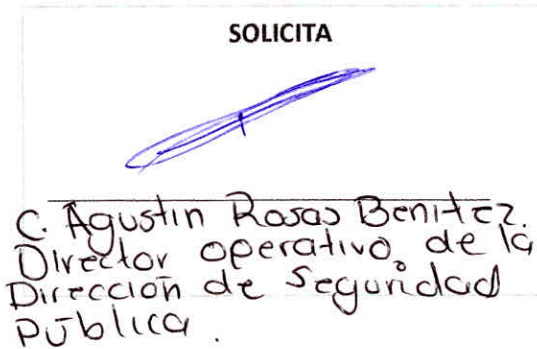 SOLICITA
C. Agustin Rosas Benitez.
Director operativo de la
Dirección de Seguridad
Pública.